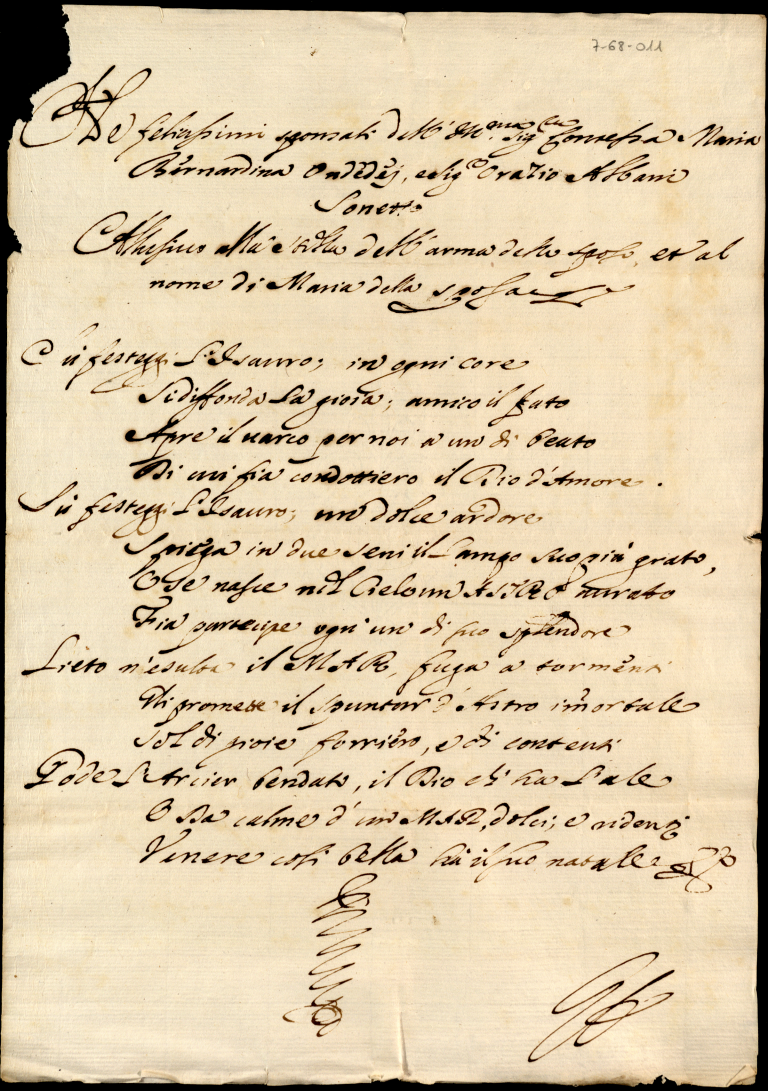 7-68-011
Ne felicissimi sponsali dell' Ill.ma Sig.ra Contessa Maria
Bernardina Ondedej, e Sig.r Orazio Albani
Sonetto
Allusivo alla stella dell' arma dello sposo, et al
nome di Maria della sposa
Sù festeggi l'Isauro; in ogni core
Si diffonda la gioia; amico il fato
Apre il varco per noi a un dì beato
Di cui fia condottiero il Dio d'Amore.
Sù festeggi l'Isauro; un dolce ardore
Spiega in due seni il lampo suo più grato,
E se nasce nel Cielo un ASTRO aurato
Fia partecipe ogn'un di suo splendore
Lieto n'esulta il MAR, fuga a tormenti
Gli promette il spuntar d'Astro immortale
Sol di gioie forriero, e di contenti
Gode l'Arcier bendato, il Dio ch'ha l'ale
E da calme d'un MAR, dolci, e ridenti
Venere così bella hà il suo natale